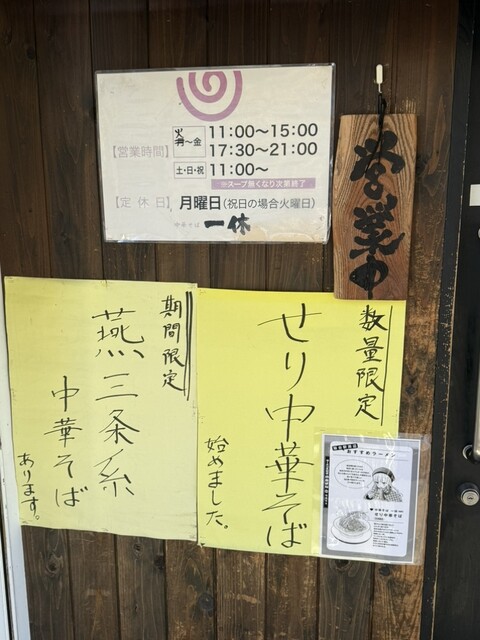 【営業時間】
火～金
11:00～15:00
17:30～21:00
土・日・祝
11:00～
※スープ無くなり次第終了
【定休日】
月曜日（祝日の場合火曜日）
中華そば 一休
営業中
数量限定
せり中華そば
始めました。
期間限定
燕三条系
中華そば
あります。
おすすめラーメン
せり中華そば